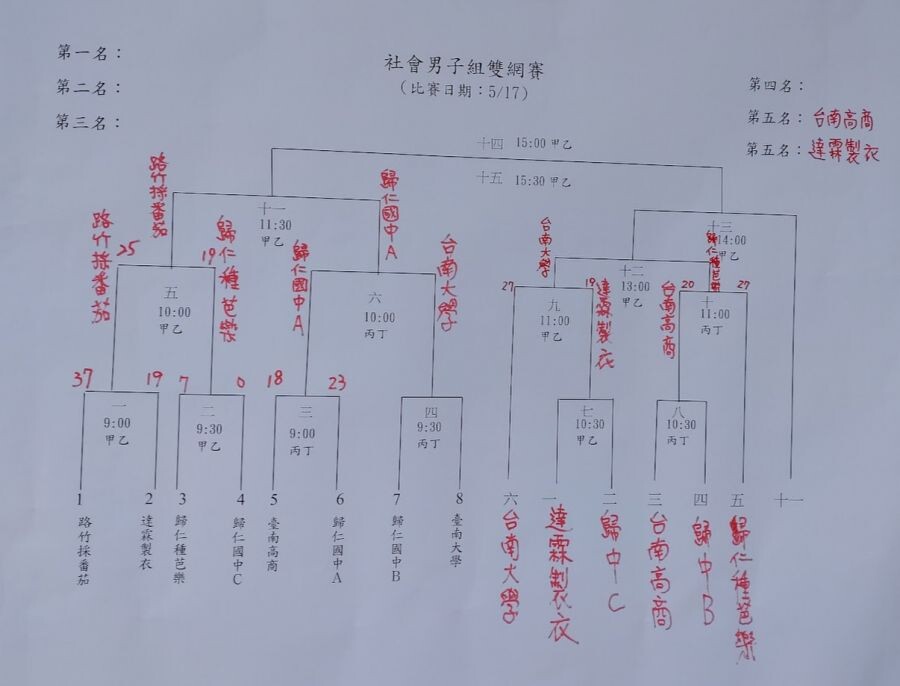 第一名：
第二名：
第三名：
社會男子組雙網賽
(比賽日期：5/17)
第四名：
第五名：台南高商
第五名：達霖製衣
十四 15:00 甲乙
十五 15:30 甲乙
路竹採番茄
歸仁國中A
十一
11:30
甲乙
十三
14:00
甲乙
路竹採番茄
25
19
歸仁種芭樂
歸仁國中A
台南大學
台南大學
歸仁種芭樂
十二
13:00
甲乙
五
10:00
甲乙
六
10:00
丙丁
27
九
11:00
甲乙
19
達霖製衣
台南高商
20
十
11:00
丙丁
27
37
19
7
0
18
23
一
9:00
甲乙
二
9:30
甲乙
三
9:00
丙丁
四
9:30
丙丁
七
10:30
甲乙
八
10:30
丙丁
1
2
3
4
5
6
7
8
六
一
二
三
四
五
十一
路竹採番茄
達霖製衣
歸仁種芭樂
歸仁國中C
臺南高商
歸仁國中A
歸仁國中B
臺南大學
台南大學
達霖製衣
歸中C
台南高商
歸中B
歸仁種芭樂